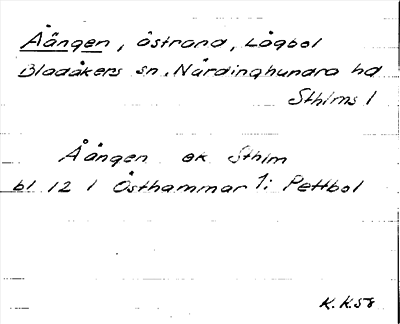 Åängen, åstrand, Lågbol
Bladåkers sn, Närdinghundra hd
Sthlms l
Åängen ek Sthlm
bl 12 l Östhammar 1: Pettbol
K. K. 58